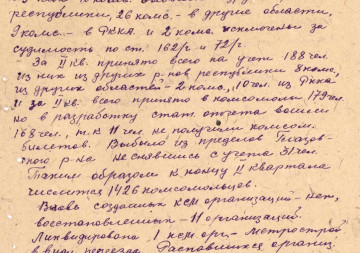 республики, 26 комс. - в другие области,
9 комс. - в РККА и 2 комс. исключены за
судимость по ст. 162/г и 72/г.
За II кв. принято всего на учет 188 чел
из них из других р-нов республики 8 комс,
из других областей - 2 комс, 10 чел. из Ркка
и за II кв. всего принято в комсомолы 179 чел
но в разработку стат. отчета вошли
168 чел, т.к 11 чел не получили комсом.
билетов. Выбыло из пределов Глазов-
ского р-на не снявшись с учета 31 чел.
Таким образом к концу II квартала
числится 1426 комсомольцев.
Вновь созданных ксм организаций - нет,
восстановленных - 11 организаций.
Ликвидировано 1 ксм орг. - Метрострой
ввиду переезда. Распавшихся организ.